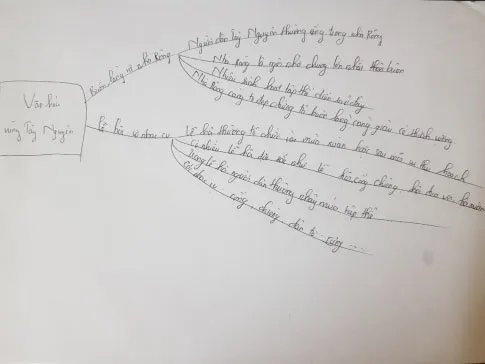 Văn hóa
vùng Tây Nguyên
Buôn làng và nhà Rông
Người dân Tây Nguyên thường sống trong nhà Rông
Nhà Rông là ngôi nhà chung lớn nhất thôn buôn
Nhiều sinh hoạt tập thể diễn ra ở đây
Nhà Rông càng to đẹp chứng tỏ buôn làng càng giàu có thịnh vượng
Lễ hội và nhạc cụ
Lễ hội thường tổ chức vào mùa xuân hoặc sau mỗi vụ thu hoạch
Có nhiều lễ hội đặc sắc như lễ hội cồng chiêng, hội đua voi, hội xuân
Trong lễ hội người dân thường nhảy múa tập thể
Các nhạc cụ: cồng, chiêng, đàn tơ rưng ...